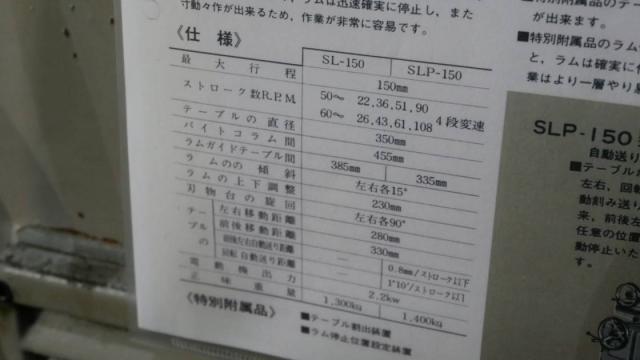 寸動々作が出来るため、作業が非常に容易です。
ラムは迅速確実に停止し、また
《仕様》
SL-150 SLP-150
最大行程 150mm
ストローク数R.P.M. 50〜 22,36,51,90
60〜 26,43,61,108 4段変速
テーブルの直径 350mm
バイトコラム間 455mm
ラムガイドテーブル間 385mm 335mm
ラムのの傾斜 左右各15°
ラムの上下調整 230mm
刃物台の旋回 左右各90°
テーブルの 左右移動距離 280mm
前後移動距離 330mm
前後左右自動送り距離 — 0.8mm/ストローク以下
回転自動送り距離 — 1°10′/ストローク以下
電動機出力 2.2kw
正味重量 1,300kg 1,400kg
《特別附属品》
■テーブル割出装置
■ラム停止位置設定装置
■特別附属品のテー
が出来ます。
■特別附属品のラム
と、ラムは確実に
業はより一層やり易
SLP-150
自動送り
■テーブル
左右、回
動刻み送り
来、前後左
任意の位置
動停止いた
す。